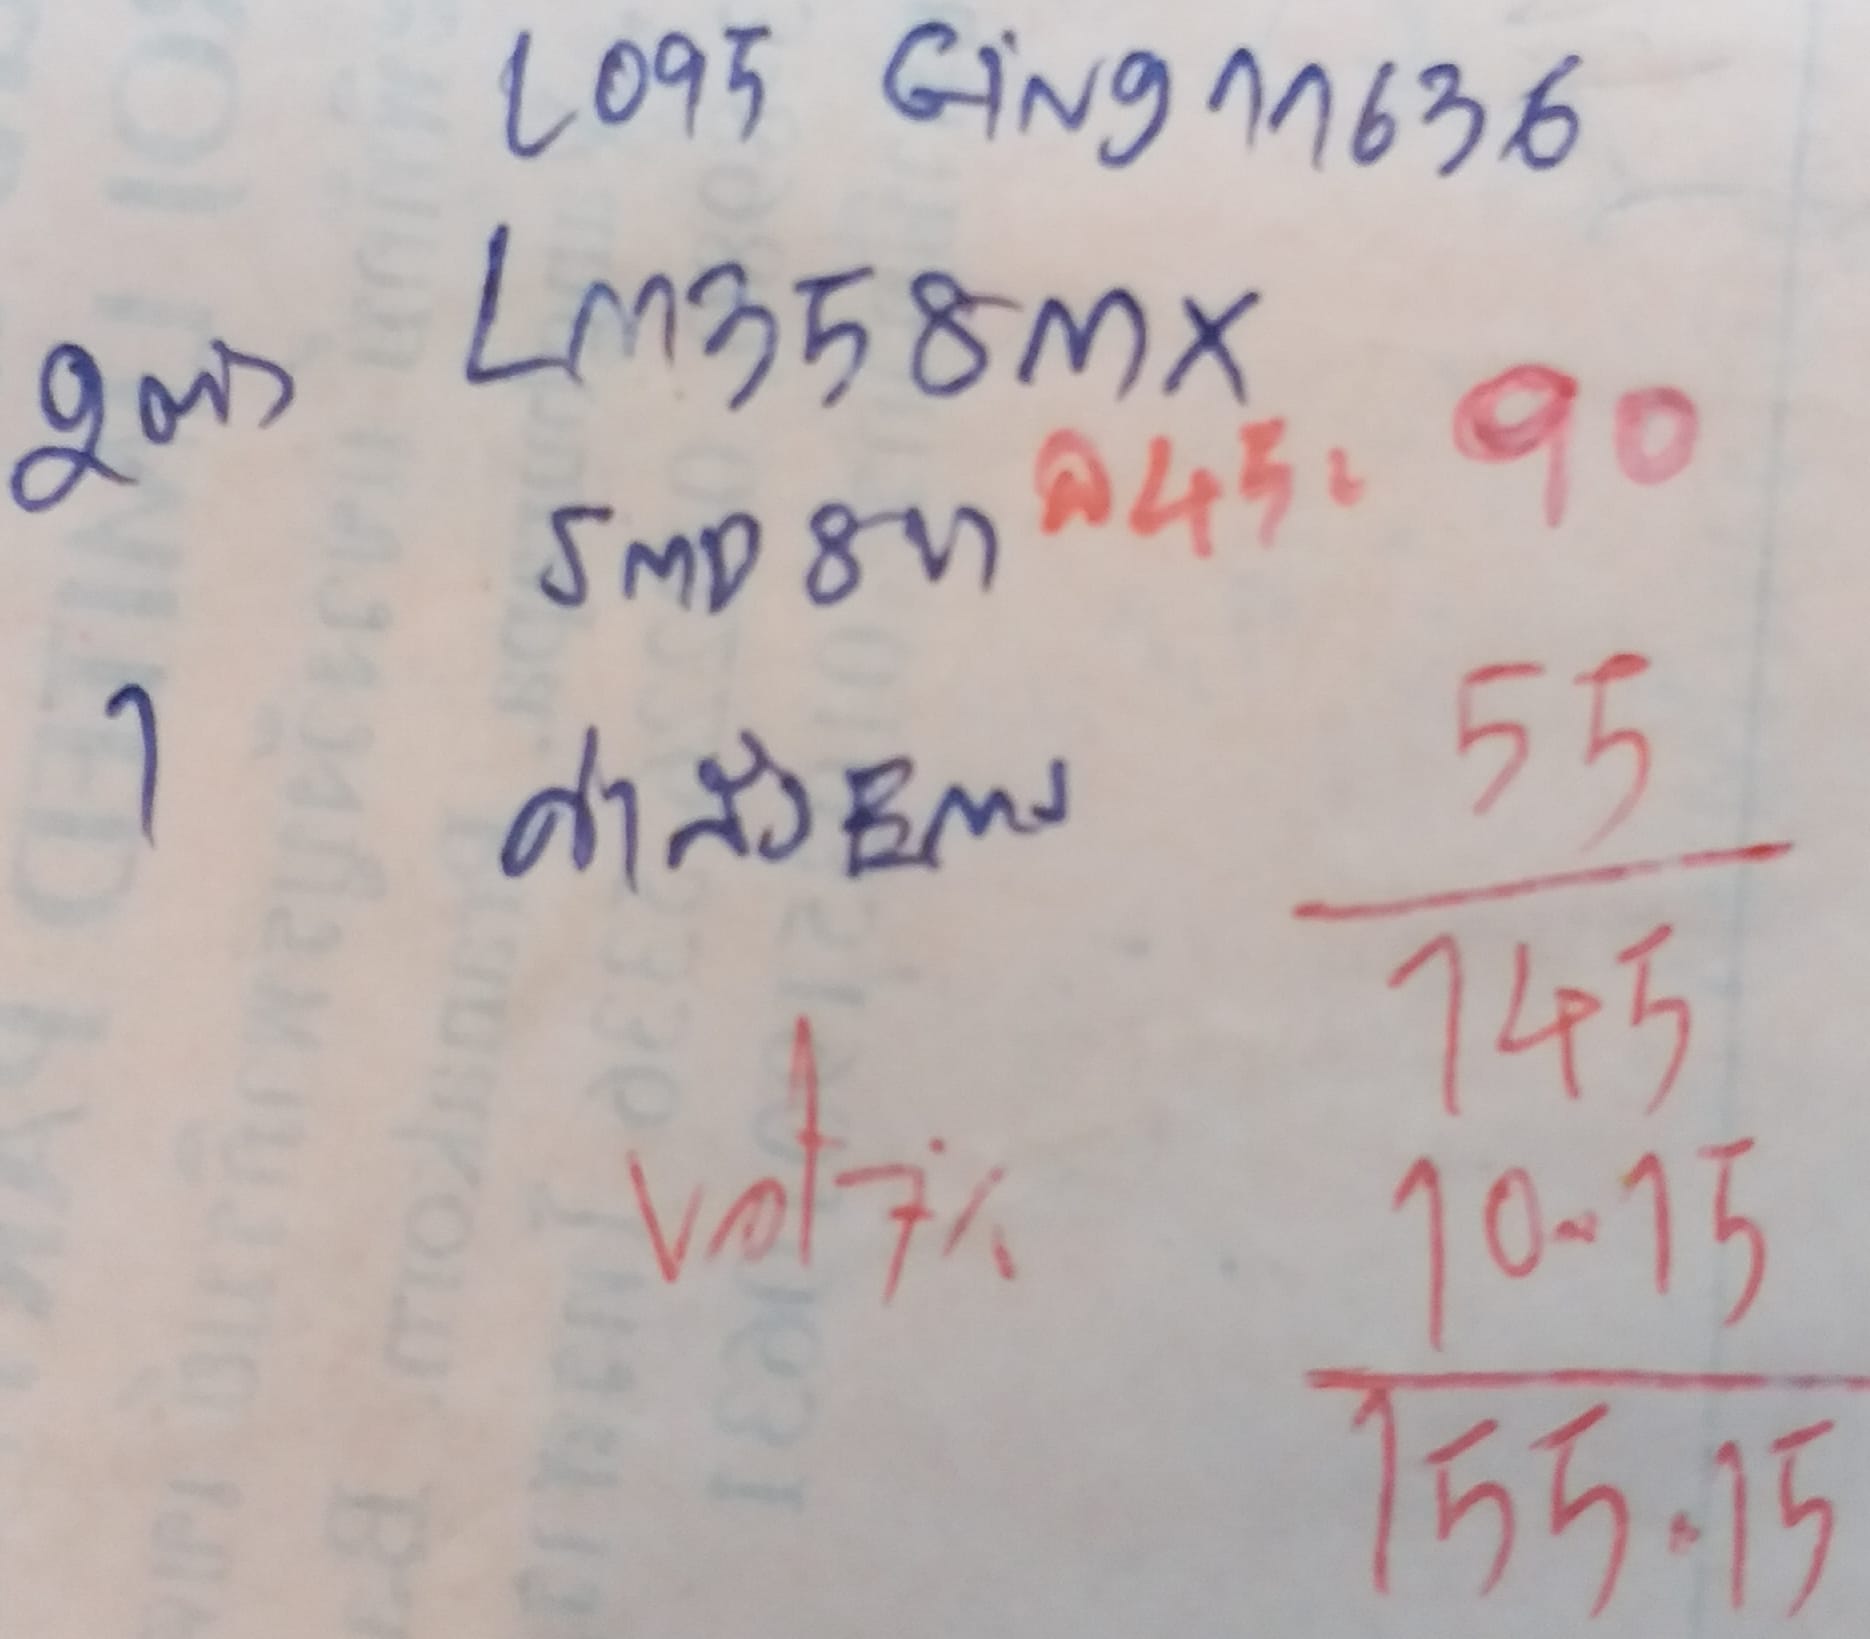 L095 GING 11636
2 ตัว LM358MX
SMD 8 ขา @45: 90
1 ค่าส่ง EMS 55
145
Vat 7% 10.15
155.15